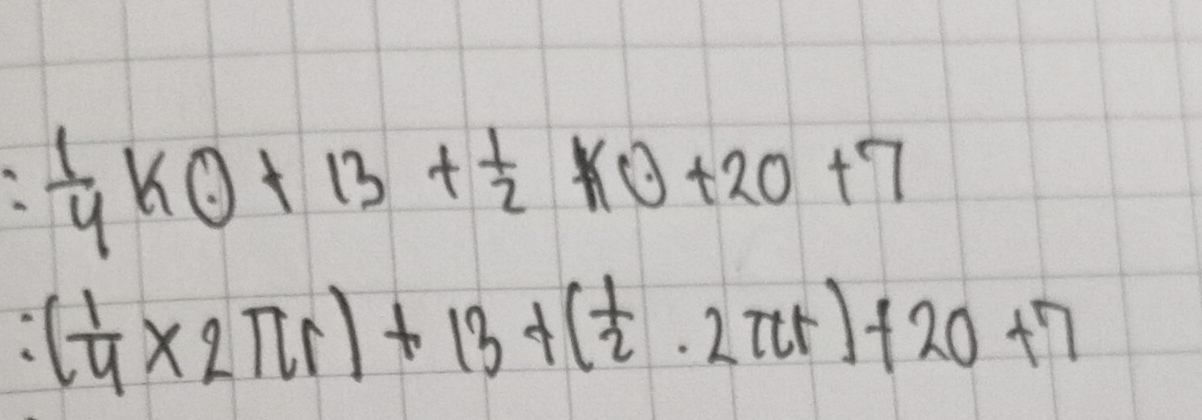 : 1/4 K⊙ + 13 + 1/2 K⊙ + 20 + 7
: (1/4 × 2πr) + 13 + (1/2 . 2πr) + 20 + 7